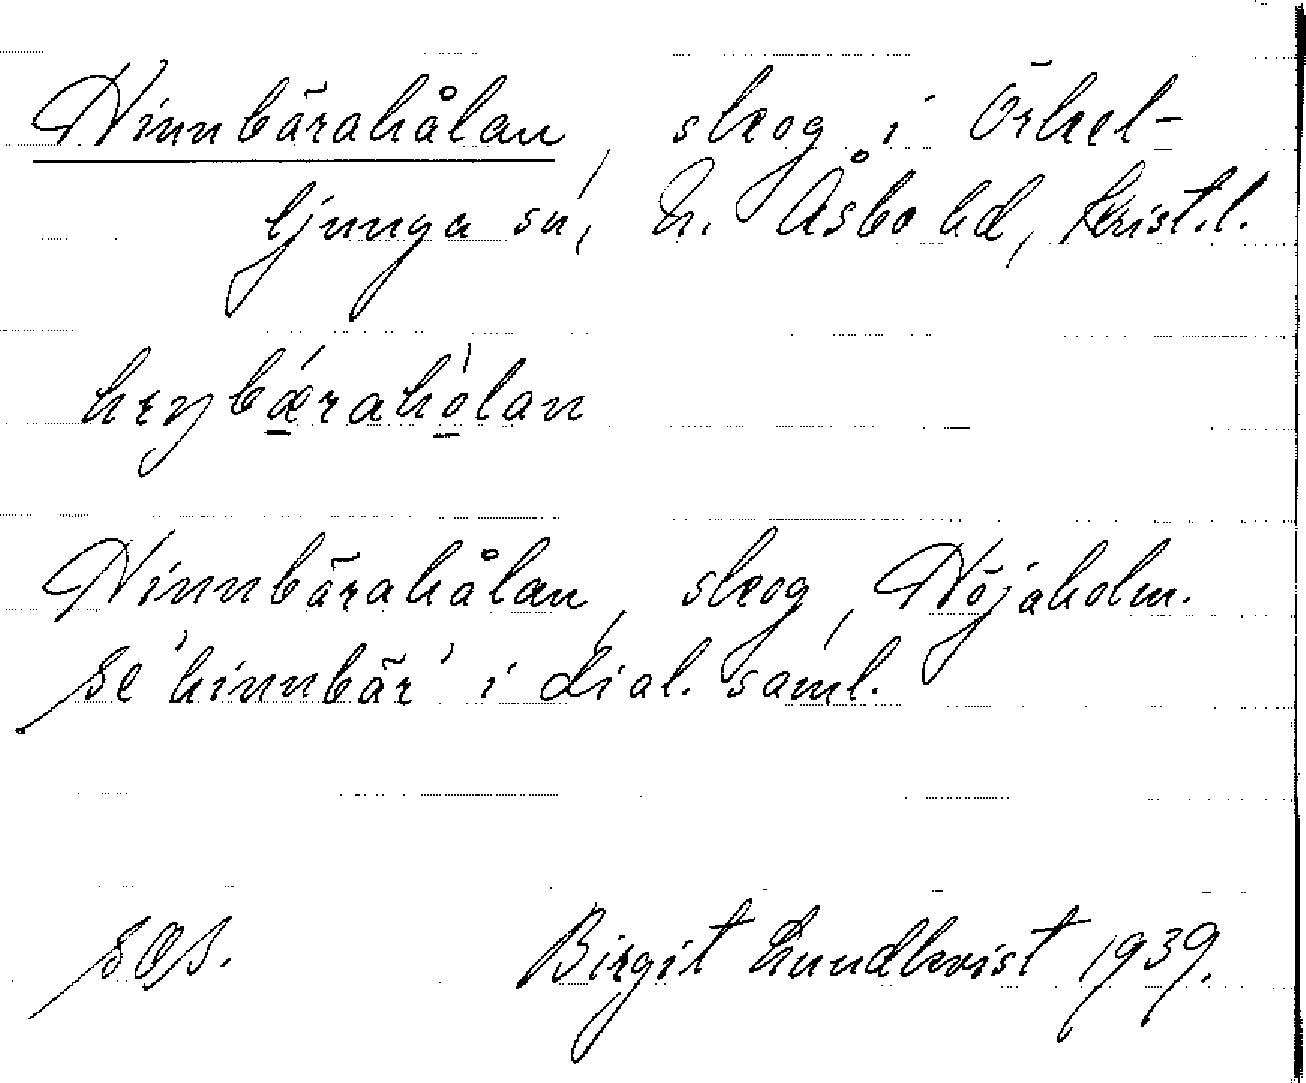 Hinnbärahålan, skog i Örkel-
ljunga sn, N. Åsbo hd, Krist.l.
henbǽ̱rahó̱lan
Hinnbärahålan, skog, Höjaholm.
Se 'hinnbär' i dial. saml.
SOS. Birgit Lundkvist 1939.